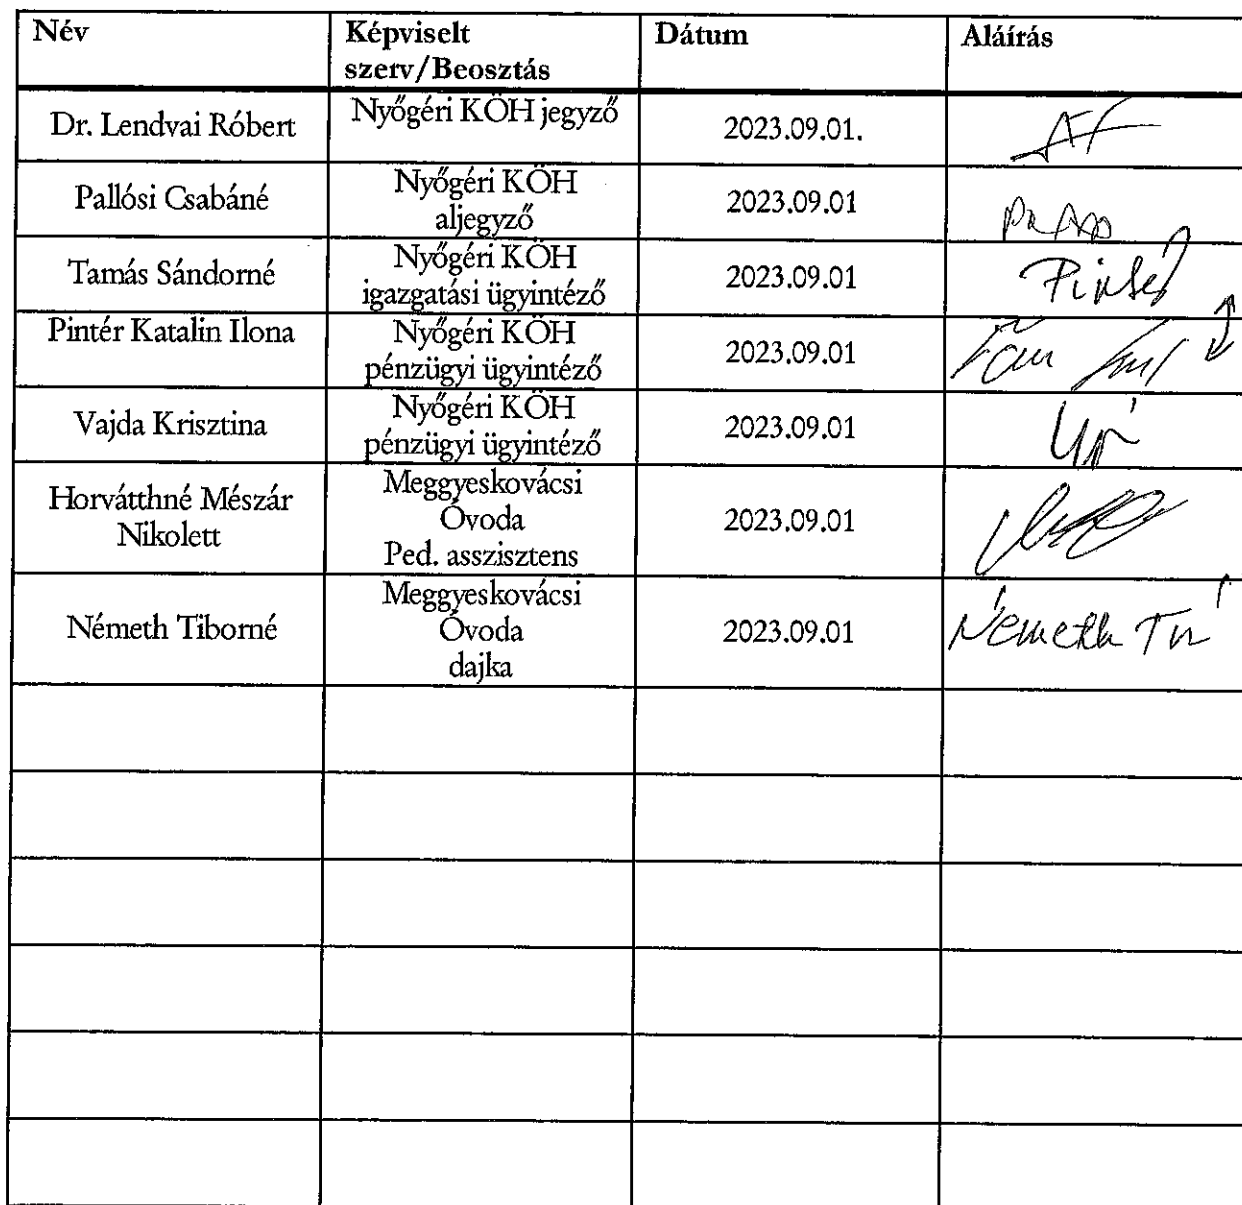 Név Képviselt szerv/Beosztás Dátum Aláírás
Dr. Lendvai Róbert Nyőgéri KÖH jegyző 2023.09.01.
Pallósi Csabáné Nyőgéri KÖH aljegyző 2023.09.01
Tamás Sándorné Nyőgéri KÖH igazgatási ügyintéző 2023.09.01 Pintér
Pintér Katalin Ilona Nyőgéri KÖH pénzügyi ügyintéző 2023.09.01
Vajda Krisztina Nyőgéri KÖH pénzügyi ügyintéző 2023.09.01
Horvátthné Mészár Nikolett Meggyeskovácsi Óvoda Ped. asszisztens 2023.09.01
Németh Tiborné Meggyeskovácsi Óvoda dajka 2023.09.01 Németh